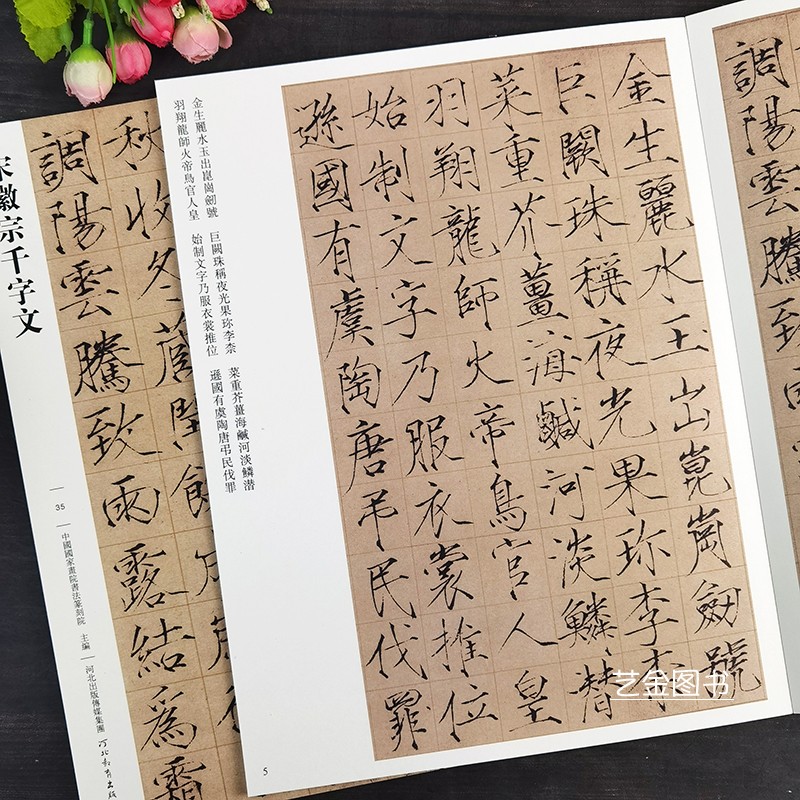 調陽雲騰致雨
金生麗水玉出崑崗劒號
巨闕珠稱夜光果珎李柰
菜重芥薑海鹹河淡鱗潜
羽翔龍師火帝鳥官人皇
始制文字乃服衣裳推位
遜國有虞陶唐弔民伐罪
金生麗水玉出崑崗劒號 巨闕珠稱夜光果珎李柰 菜重芥薑海鹹河淡鱗潜
羽翔龍師火帝鳥官人皇 始制文字乃服衣裳推位 遜國有虞陶唐弔民伐罪
5
秋收冬藏閏餘成
調陽雲騰致雨露結爲霜
宋徽宗千字文
35
中國國家畫院書法篆刻院 主編
河北出版傳媒集團
河北教育出版
艺金图书